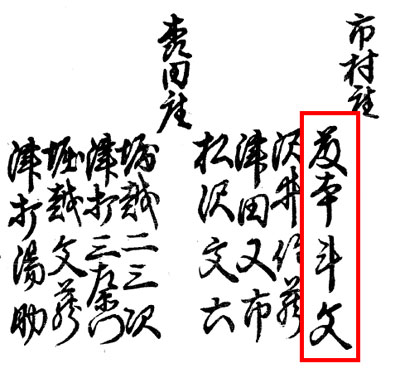 市村座
藤本斗文
沢井
津田又
松沢文六
森田座
堀越二三次
津打三左衛門
堀越文蔵
津打湯助